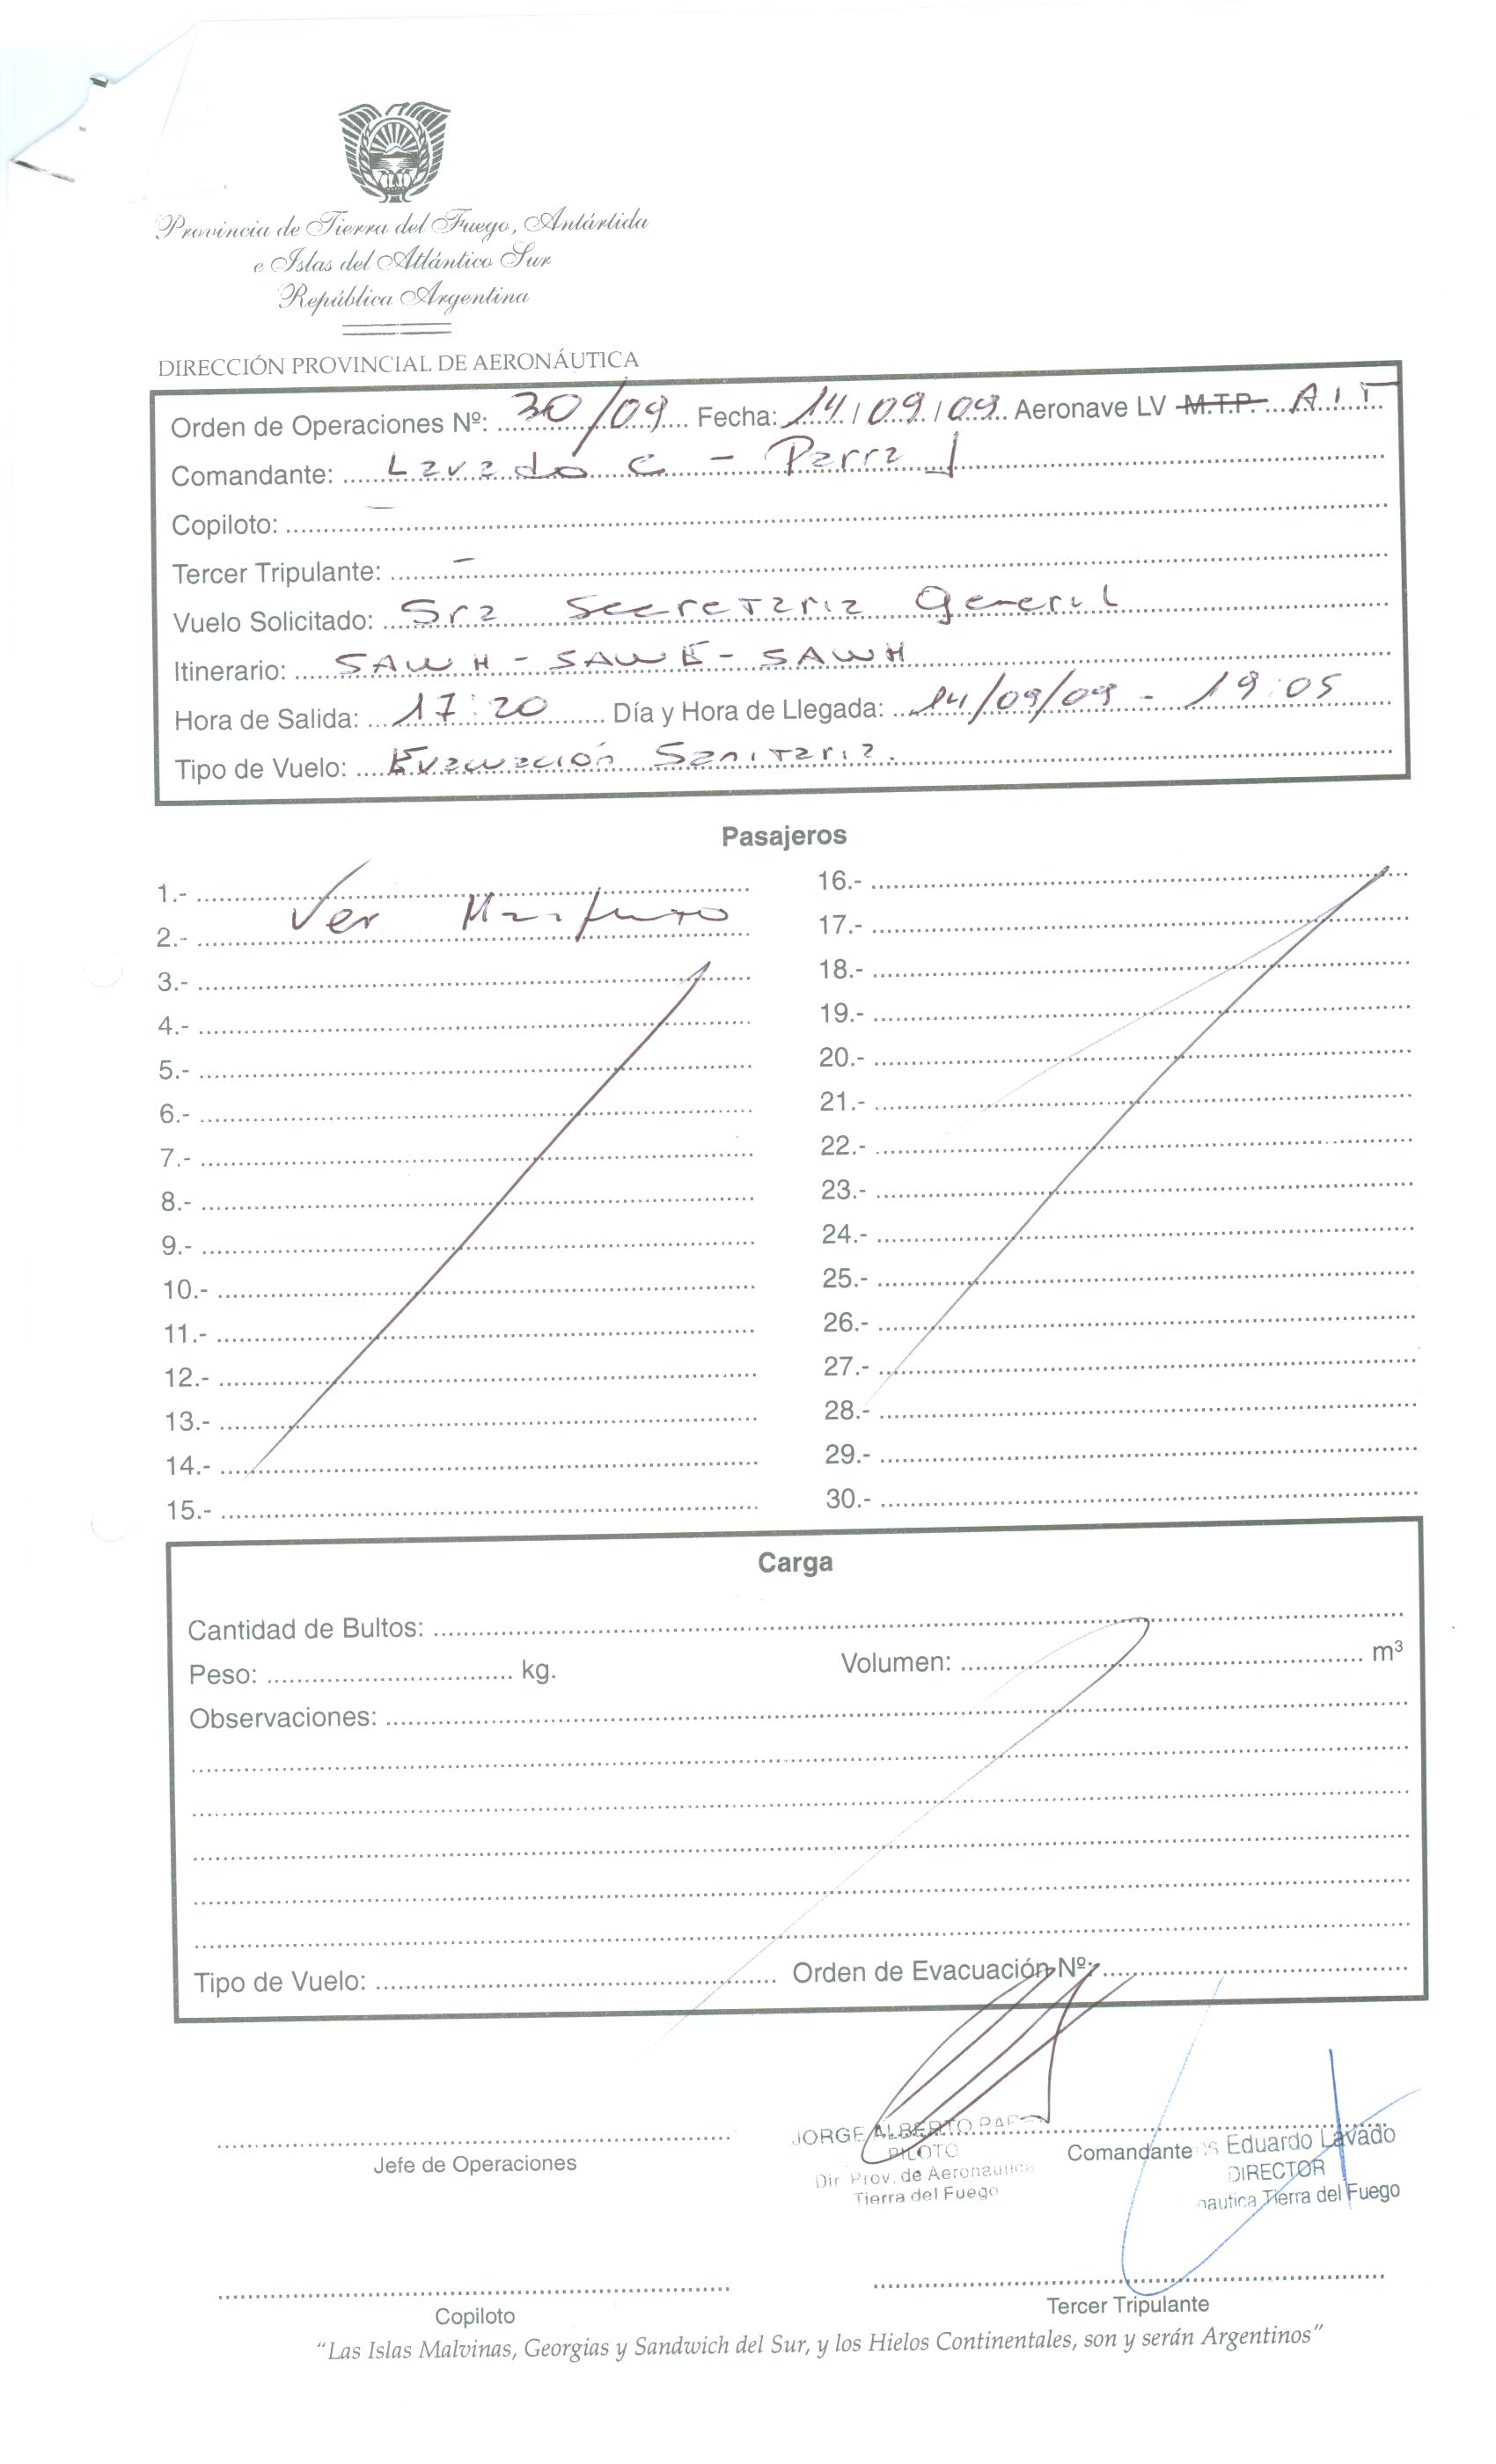 Provincia de Tierra del Fuego, Antártida
e Islas del Atlántico Sur
República Argentina
DIRECCIÓN PROVINCIAL DE AERONÁUTICA
Orden de Operaciones Nº: 30/09 Fecha: 14/09/09 Aeronave LV M.T.P. A I T
Comandante: Lavado C - Parra J
Copiloto: -
Tercer Tripulante: -
Vuelo Solicitado: Sra Secretaria General
Itinerario: SAWH - SAWE - SAWH
Hora de Salida: 17:20 Día y Hora de Llegada: 14/09/09 - 19:05
Tipo de Vuelo: Evacuación Sanitaria.
Pasajeros
1.-
Ver Manifiesto
2.-
3.-
4.-
5.-
6.-
7.-
8.-
9.-
10.-
11.-
12.-
13.-
14.-
15.-
16.-
17.-
18.-
19.-
20.-
21.-
22.-
23.-
24.-
25.-
26.-
27.-
28.-
29.-
30.-
Carga
Cantidad de Bultos:
Peso: kg. Volumen: m³
Observaciones:
Tipo de Vuelo: Orden de Evacuación Nº:
Jefe de Operaciones
JORGE ALBERTO
PILOTO
Dir. Prov. de Aeronautica
Tierra del Fuego
Comandante
Eduardo Lavado
DIRECTOR
Tierra del Fuego
Copiloto
Tercer Tripulante
"Las Islas Malvinas, Georgias y Sandwich del Sur, y los Hielos Continentales, son y serán Argentinos"